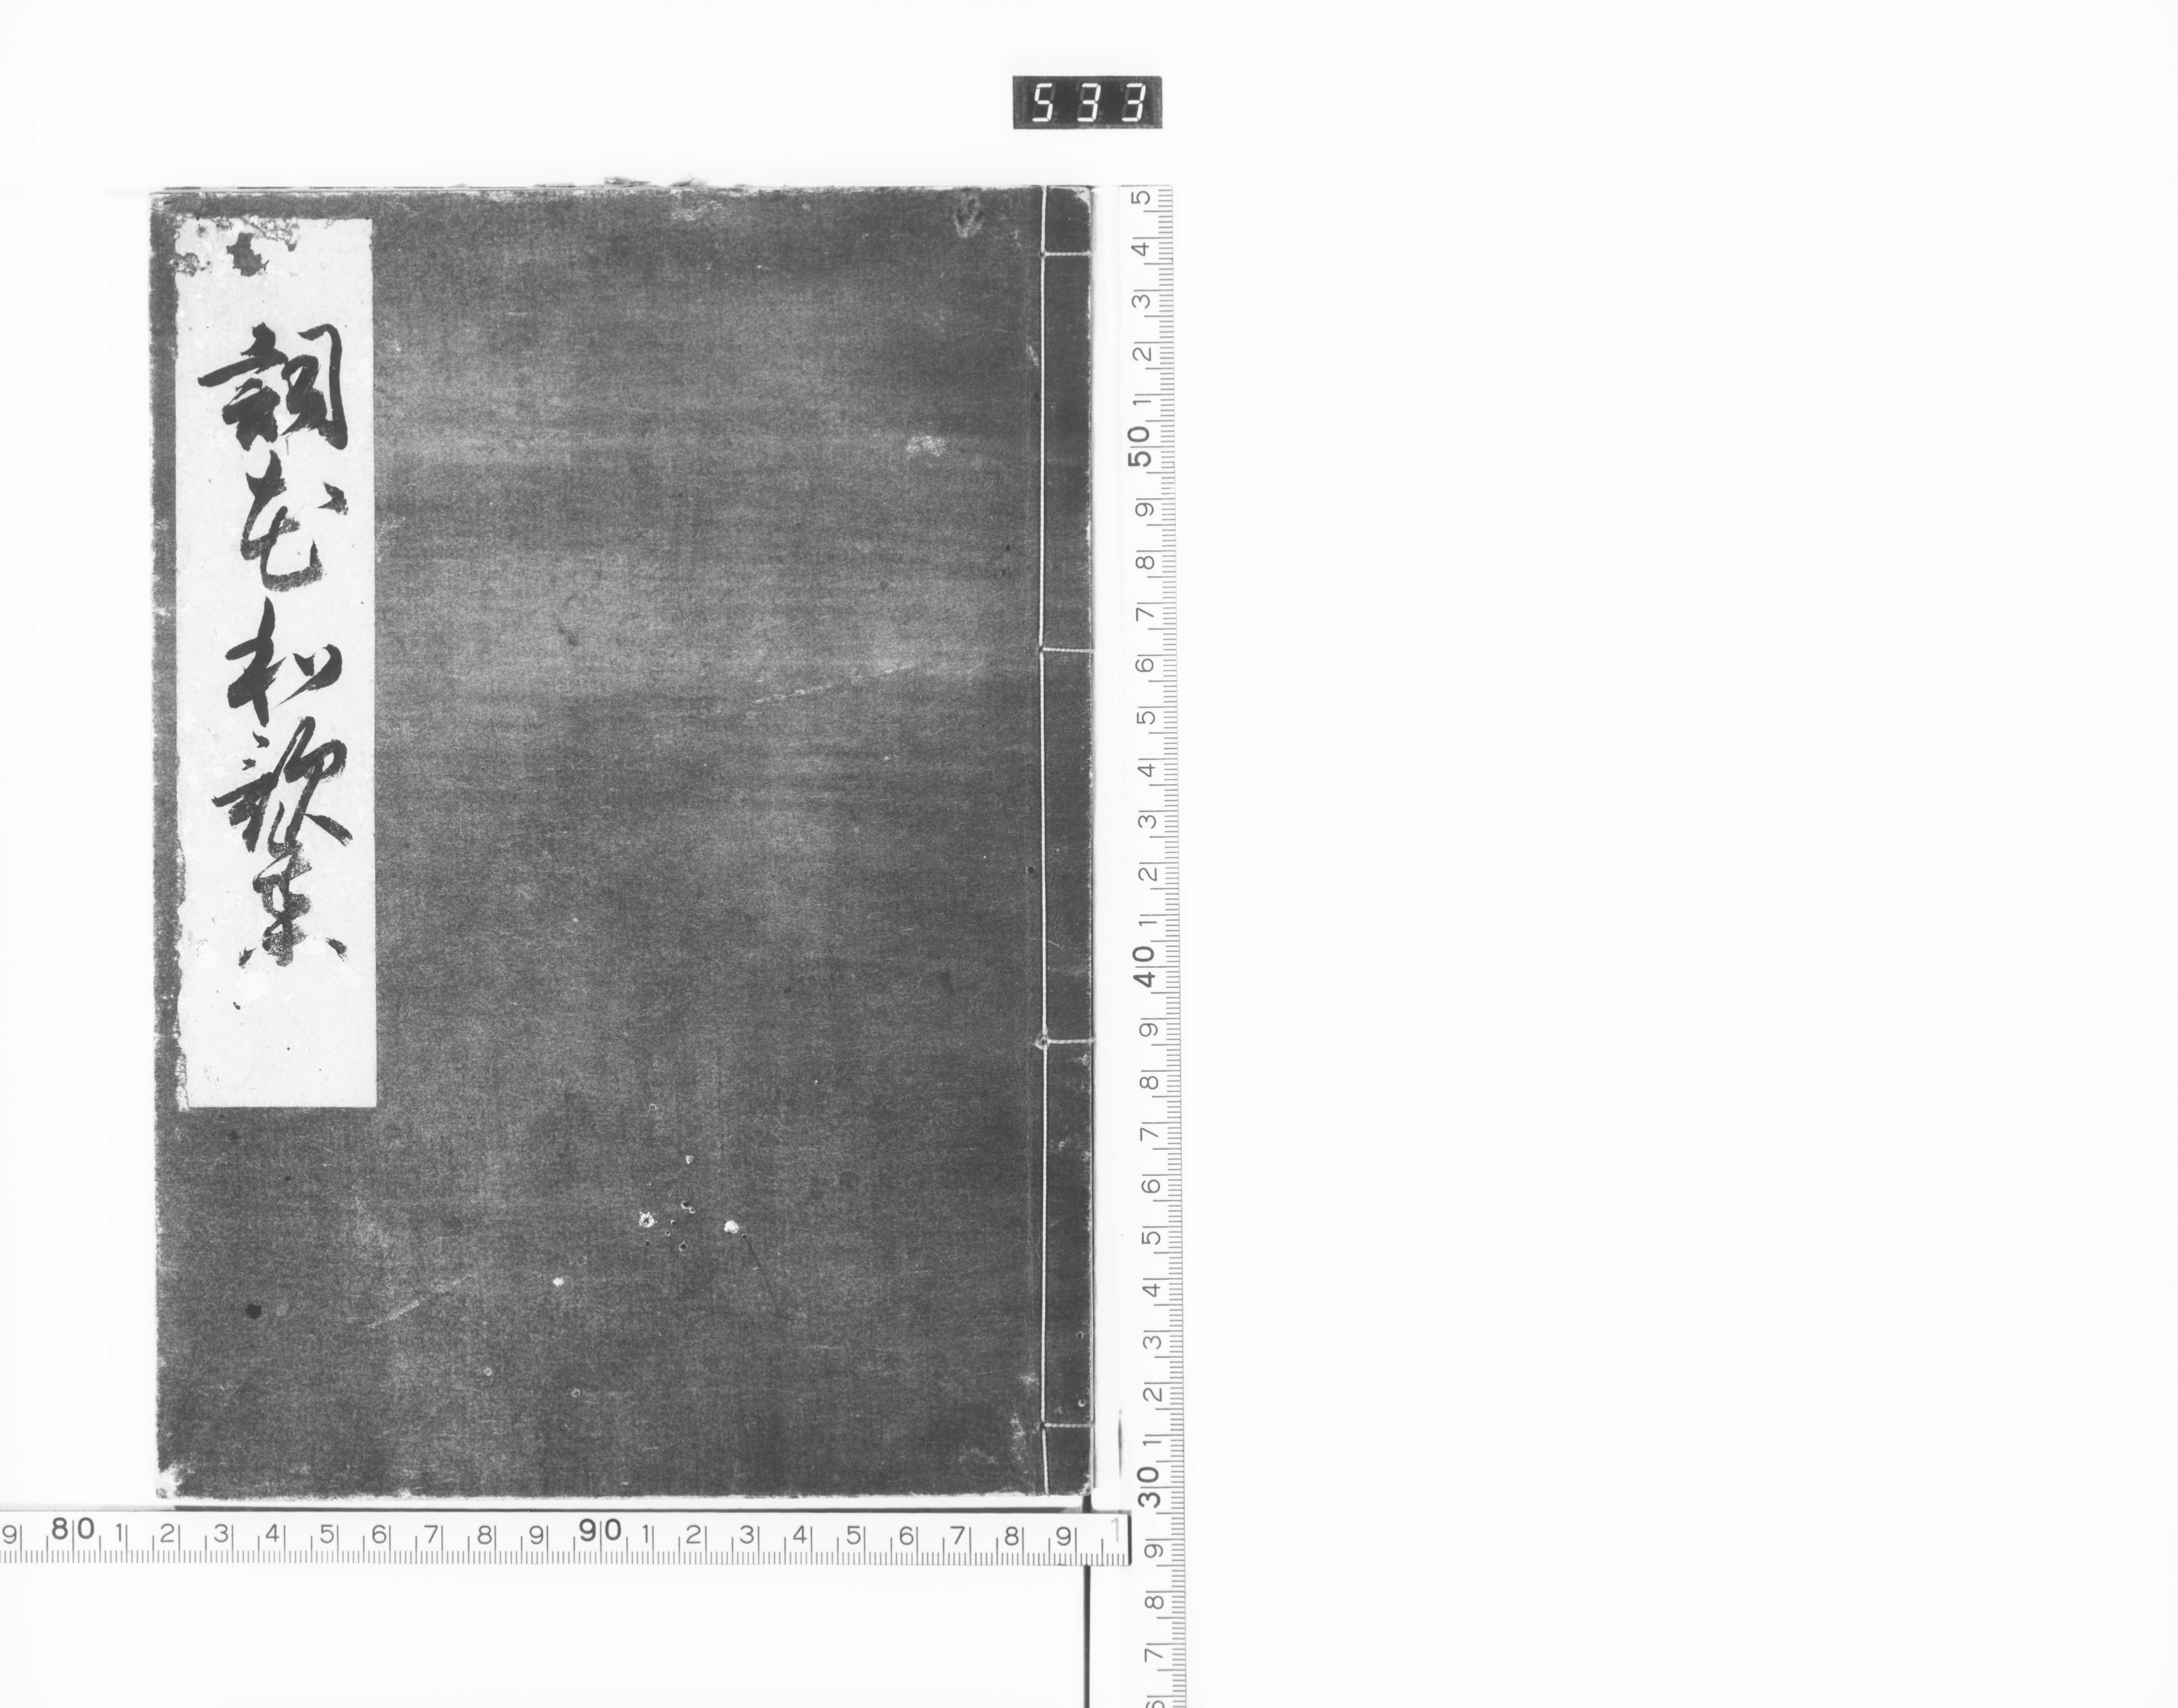 533
詞花和歌集
5 4 3 2 1 50 9 8 7 6 5 4 3 2 1 40 9 8 7 6 5 4 3 2 1 30 9 8 7 6
9 80 1 2 3 4 5 6 7 8 9 90 1 2 3 4 5 6 7 8 9 1